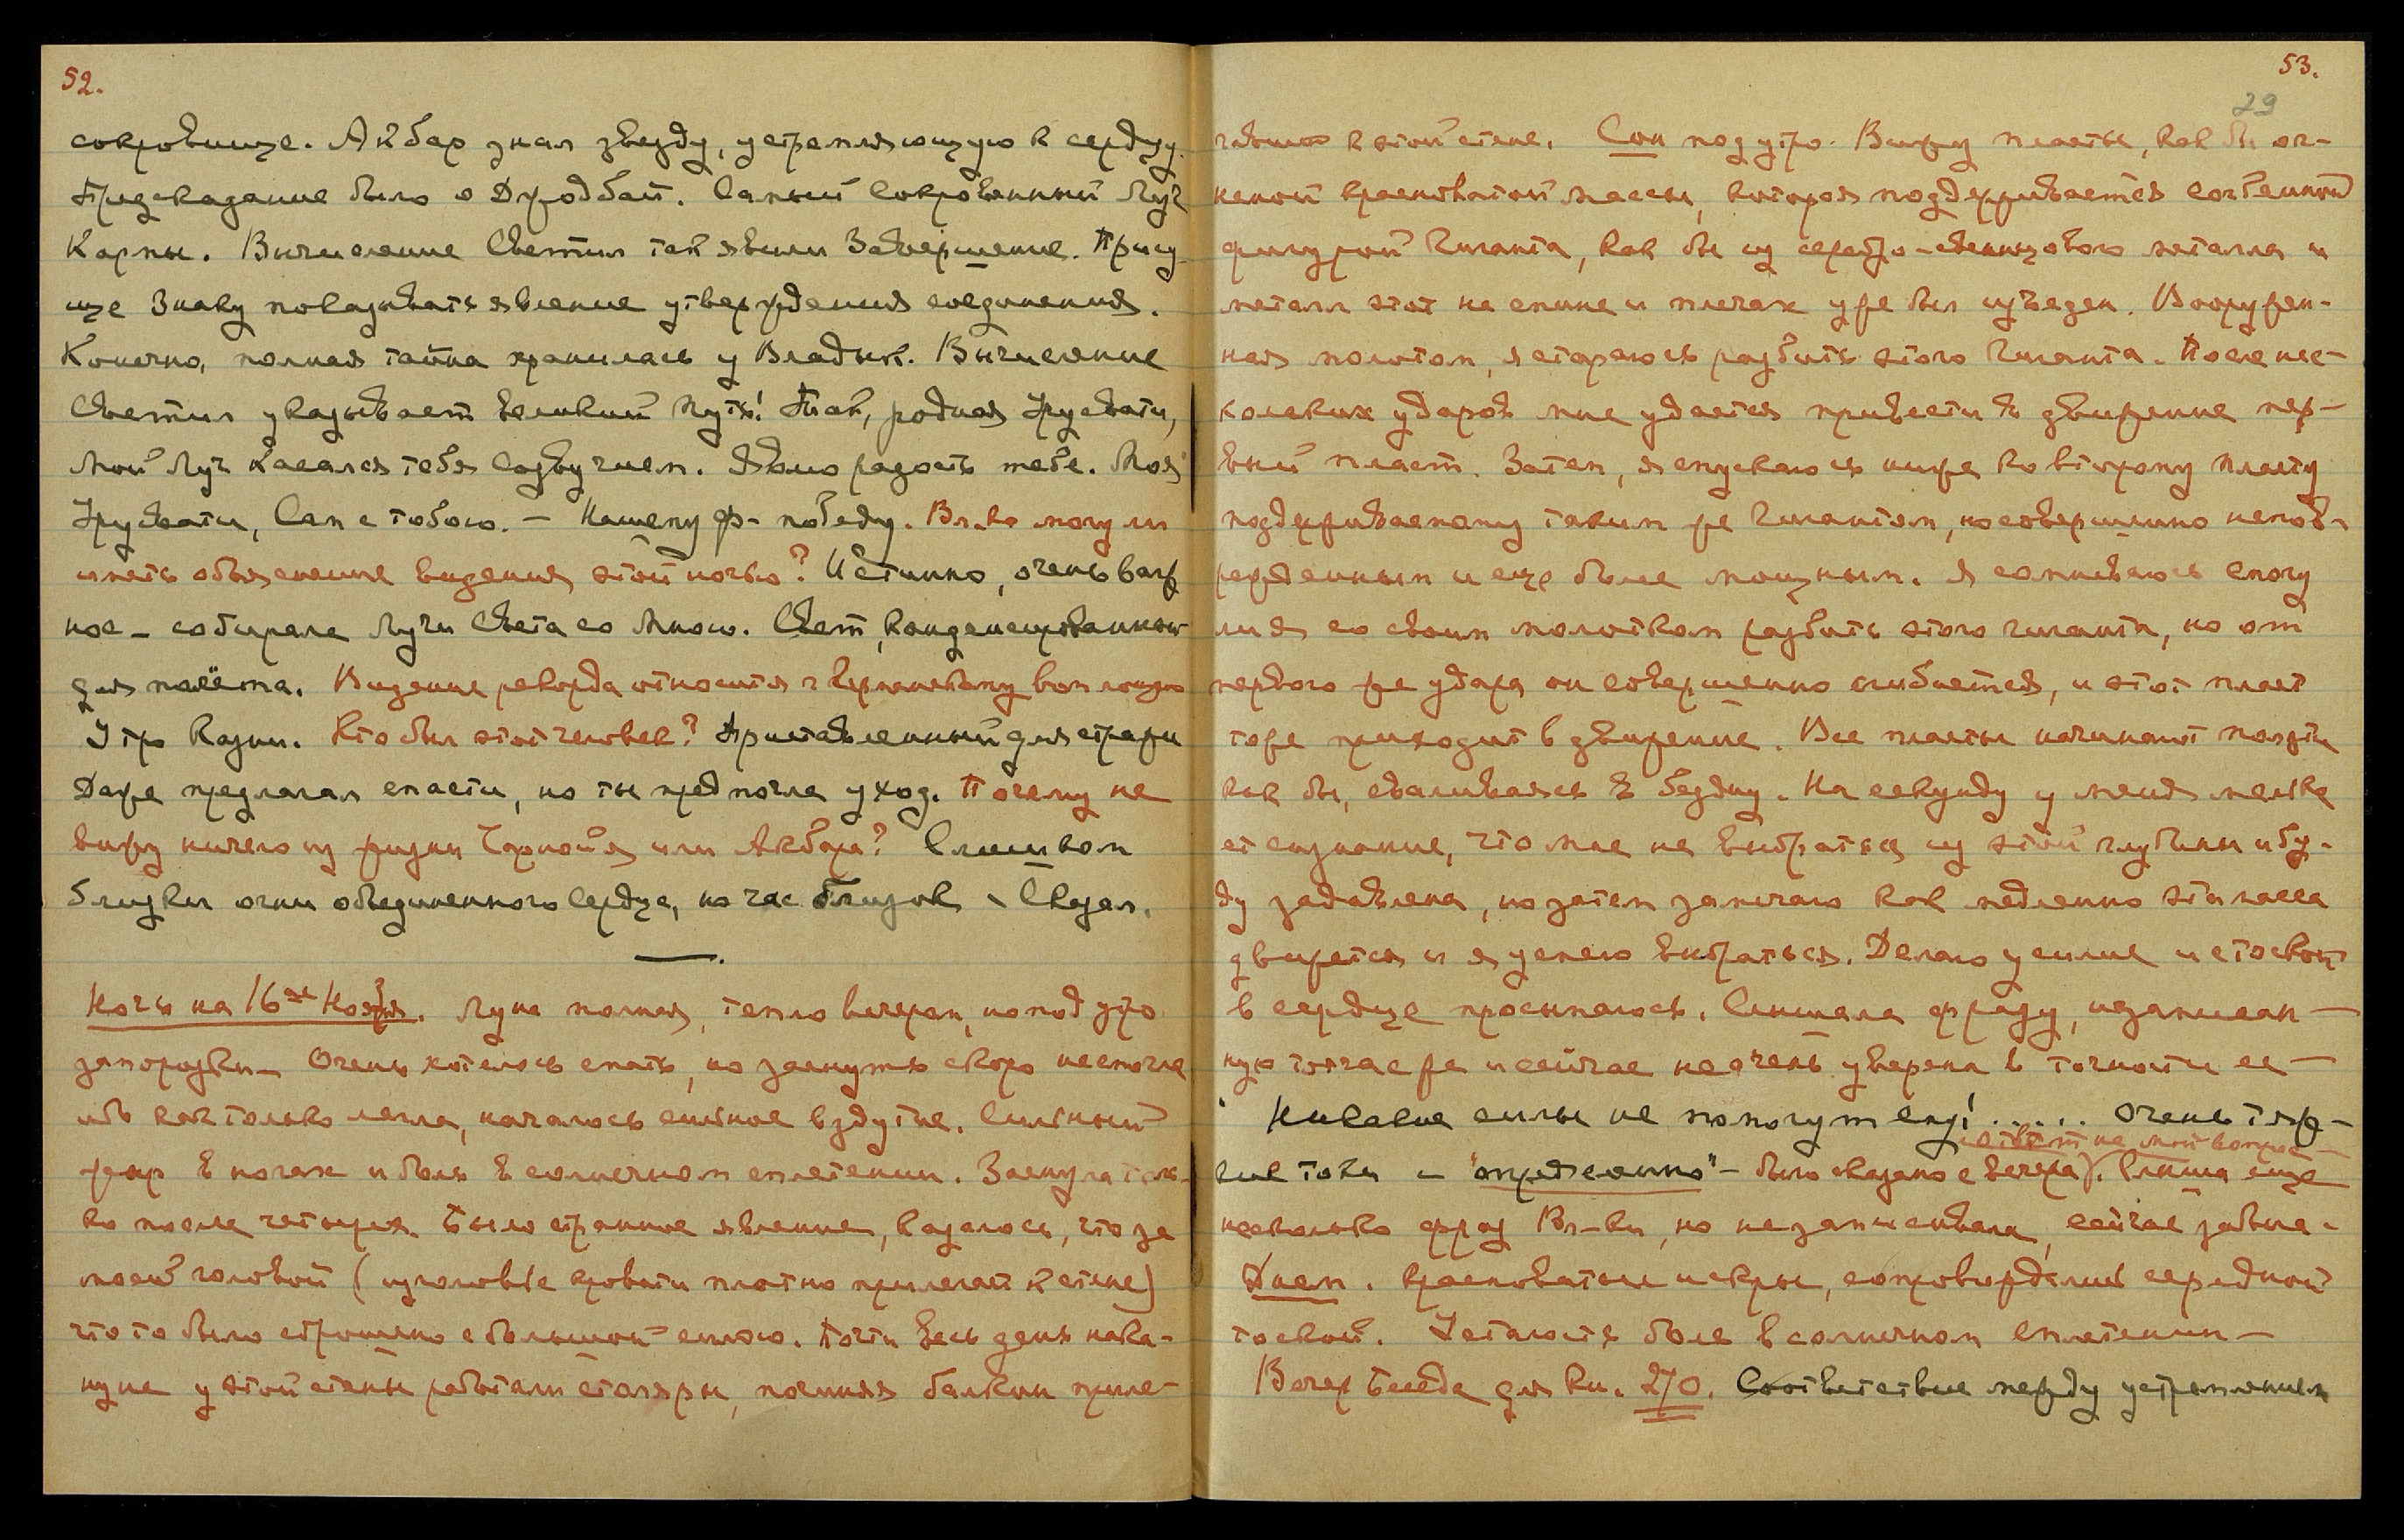 52.
сокровище. Акбар знал звезду, устремляющую к сердцу.
Предсказание было о Джодбай. Самый Сокровенный Луч
Кармы. Вычисление Светил так явили Завершение. Прису
ще Знаку показывать явление утверждения соединения.
Конечно, полная тайна хранилась у Владык. Вычисление
Светил указывает Великий Путь! Так, родная Урусвати,
Мой Луч касался тебя Созвучием. Явлю радость тебе. Моя
Урусвати, Сам с тобою. — Нашему ф- победу. Вл-ко могу ли
иметь объяснение видения этой ночью? Истинно, очень важ
ное - собирала Лучи Света со Мною. Свет, конденсированный
для полёта. Видение рекорда относится к Германскому воплощ
Утро Казни. Кто был этот человек? Приставленный для стражи
Даже предлагал спасти, но ты предпочла уход. Почему не
вижу ничего из жизни или Акбара? Слишком
близки огни объединенного Сердца, но час близок - Сказал.
Ночь на 16ое Ноября. Луна полная, тепло вечером, но под утро
заморозки - Очень хотелось спать, но заснуть скоро не смогла
ибо как только легла, началось сильное вздутие. Сильный
жар в ногах и боль в солнечном сплетении. Заснула толь-
ко после четырех. Было странное явление, казалось, что за
моей головой (изголовье кровати плотно прилегает к стене)
что то было сброшено с большой силою. Почти весь день нака-
нуне у этой стены работали столяры, починяя балкон приле-
53.
29
гавший к этой стене. Сон под утро. Вижу пласты, как бы ог-
неной красноватой массы, которая поддерживается согбенной
фигурой Гиганта, как бы из серебро-свинцового металла и
металл этот на спине и плечах уже был изъеден. Вооружен-
ная молотом, я стараюсь разбить этого Гиганта. После нес-
кольких ударов мне удается привести в движение пер-
вый пласт. Затем, я спускаюсь ниже ко второму пласту
поддерживаемому таким же Гигантом, но совершенно непов-
режденным и еще более мощным. Я сомневаюсь смогу
ли я со своим молотком разбить этого гиганта, но от
первого же удара он совершенно сгибается, и этот пласт
тоже приходит в движение. Все пласты начинают ползти
как бы, сваливаясь в бездну. На секунду у меня мелька
ет сознание, что мне не выбраться из этой глубины и бу-
ду задавлена, но затем замечаю как медленно эта масса
движется и я успею выбраться. Делаю усилие и с тоской
в сердце просыпаюсь. Слышала фразу, незаписан-
ную тотчас же и сейчас не очень уверена в точности ее —
"Никакие силы не помогут ему! ..... Очень тяж-
кие токи — "определенно" - было сказано с вечера). Слышала еще
- ответ на мой вопрос -
несколько фраз Вл-ки, но не записывала, сейчас забыла.
Днем. Красноватые искры, сопровождались сердечной
тоской. Усталость боль в солнечном сплетении —
Вечер Беседа для кн. 270. Соответствие между устремлением